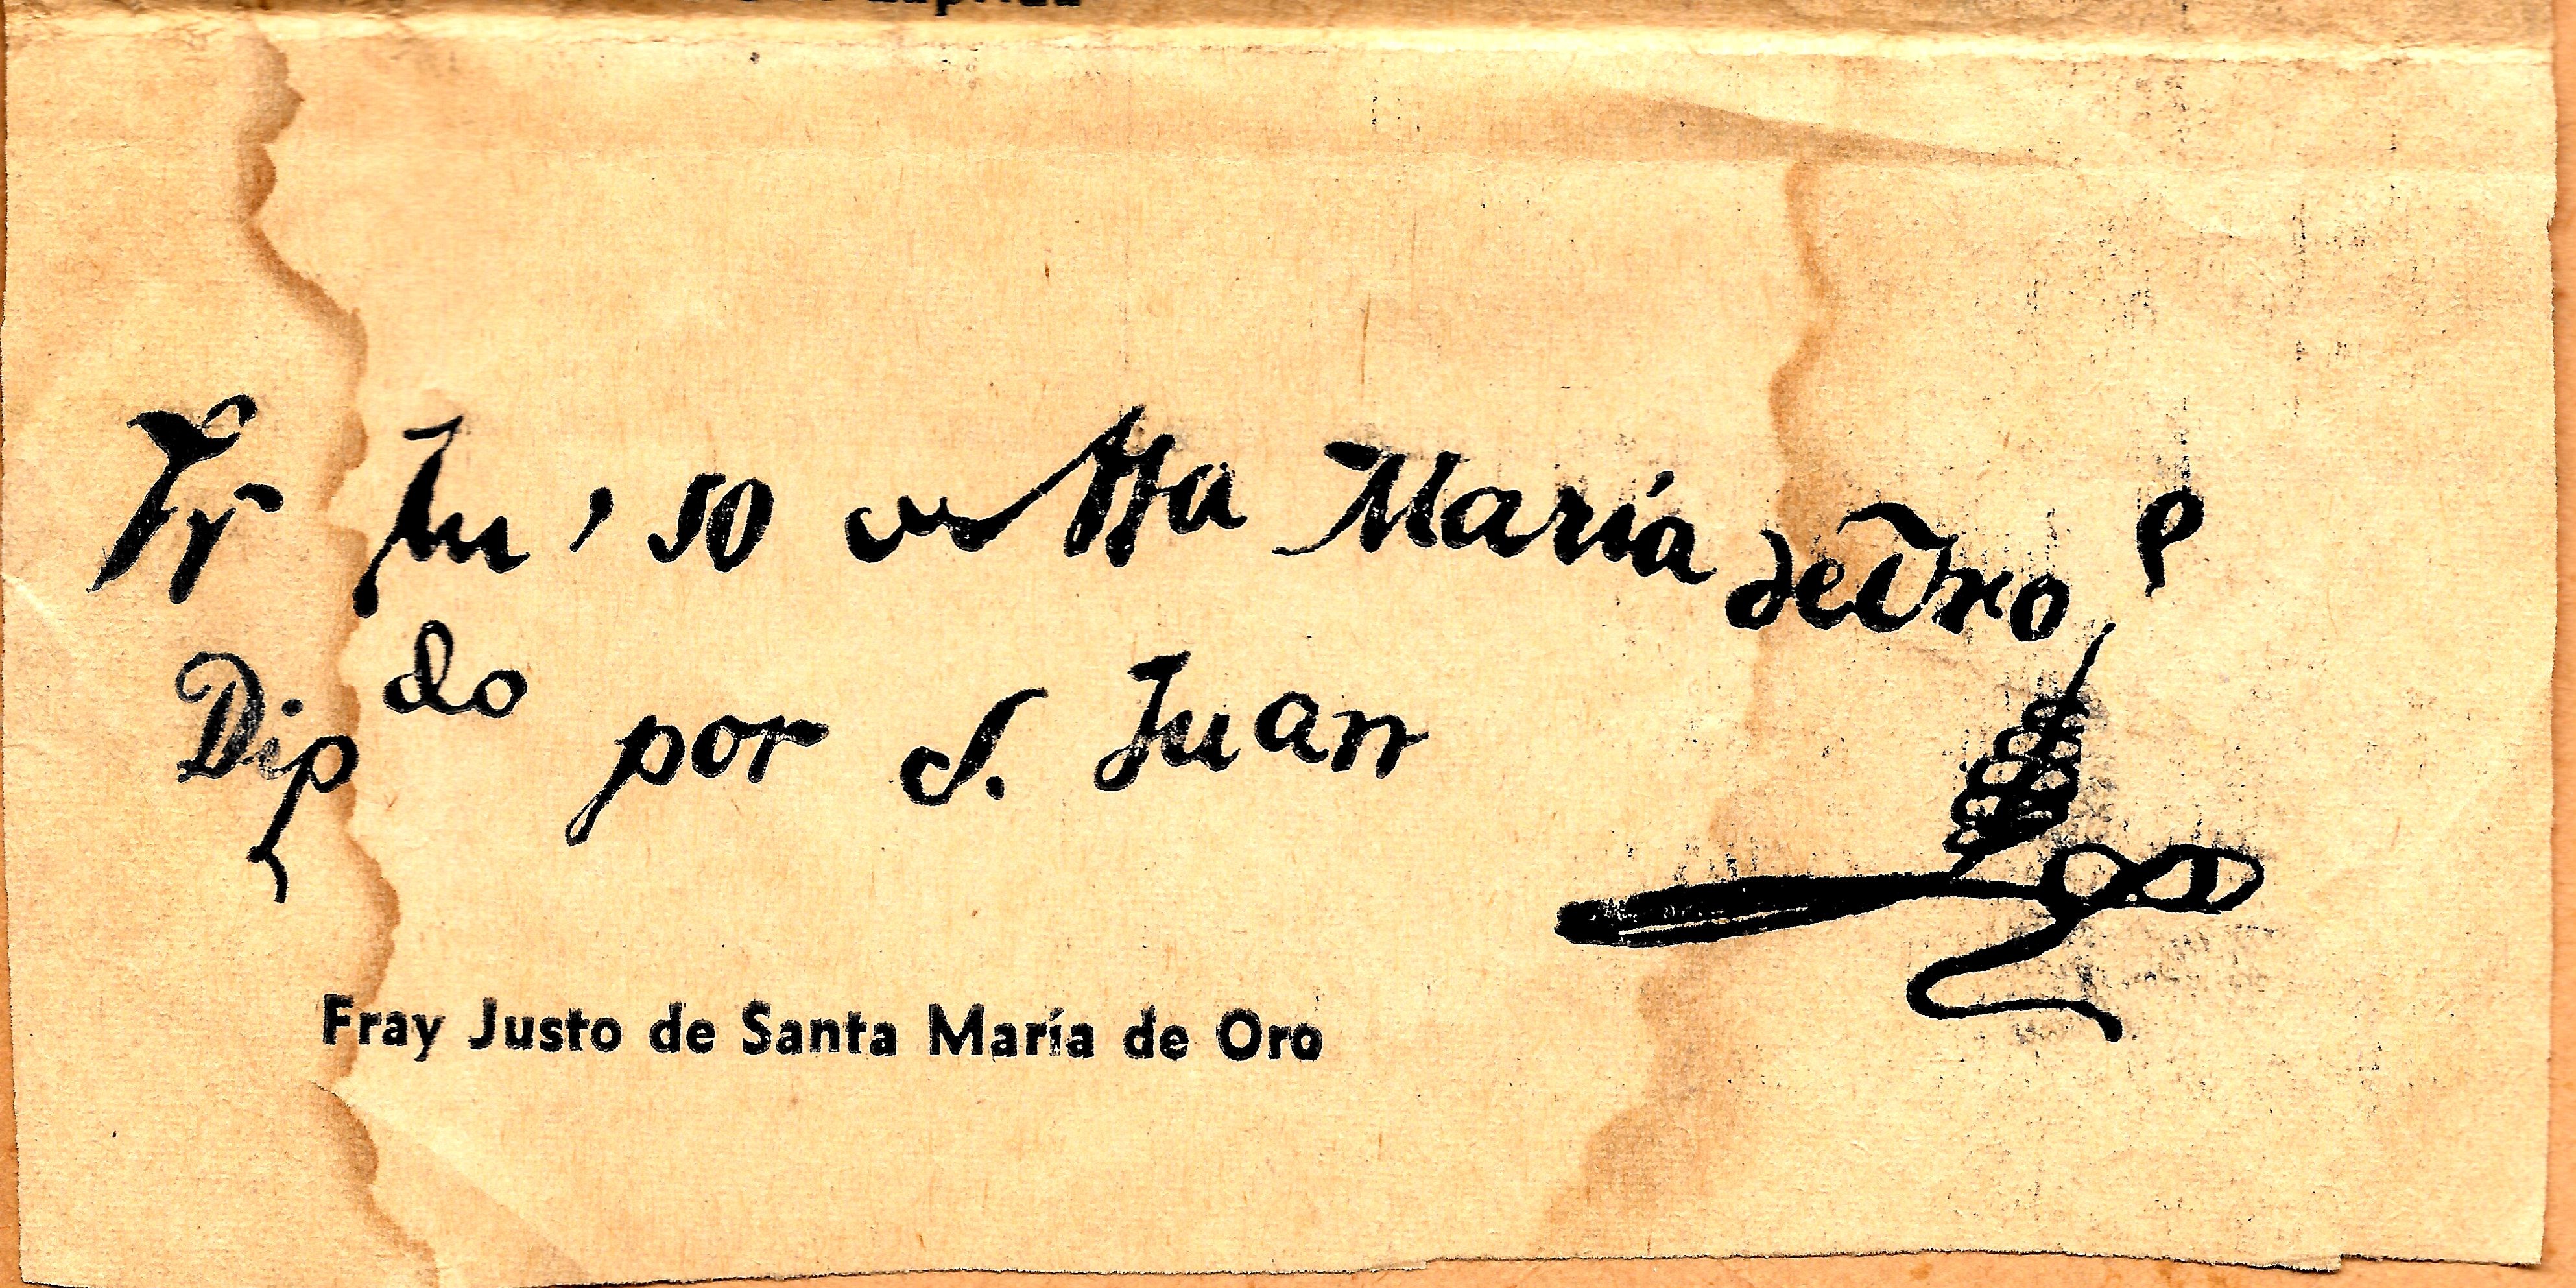 Fr Ju, so de Sta María de Oro
Dip do por S. Juan
Fray Justo de Santa María de Oro